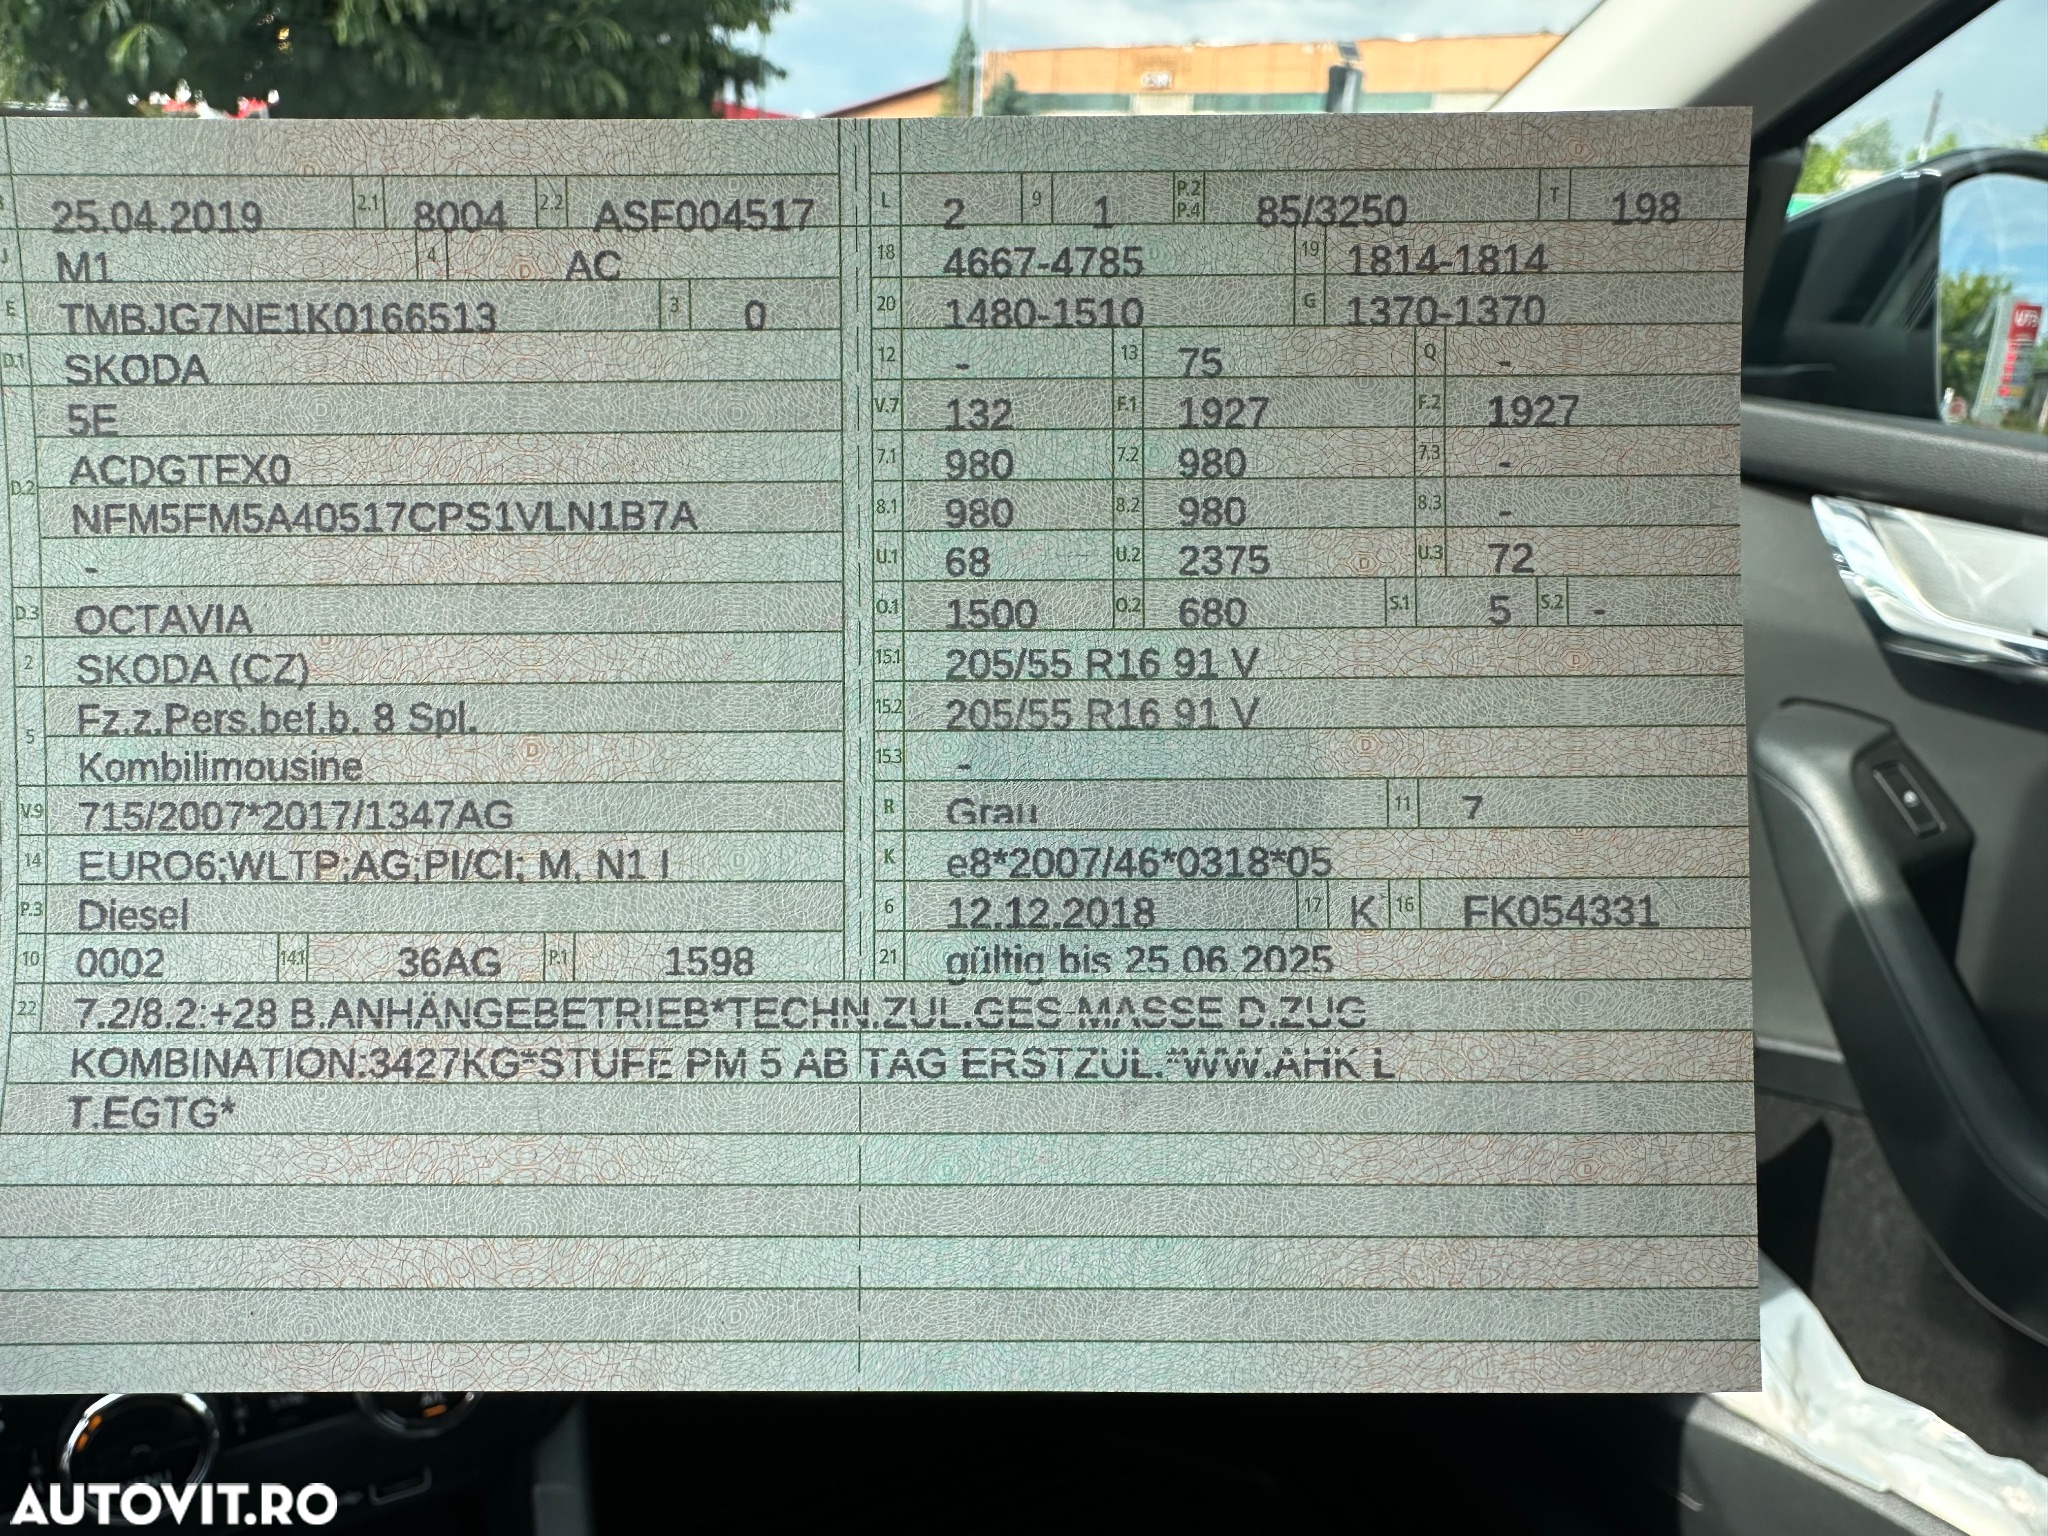 25.04.2019 2.1 8004 2.2 ASF004517
J M1 4 AC
E TMBJG7NE1K0166513 3 0
D.1 SKODA
5E
ACDGTEX0
D.2 NFM5FM5A40517CPS1VLN1B7A
-
D.3 OCTAVIA
2 SKODA (CZ)
5 Fz.z.Pers.bef.b. 8 Spl.
Kombilimousine
V.9 715/2007*2017/1347AG
14 EURO6;WLTP;AG;PI/CI; M, N1 I
P.3 Diesel
10 0002 14.1 36AG P.1 1598
L 2 9 1 P.2 P.4 85/3250 T 198
18 4667-4785 19 1814-1814
20 1480-1510 G 1370-1370
12 - 13 75 Q -
V.7 132 F.1 1927 F.2 1927
7.1 980 7.2 980 7.3 -
8.1 980 8.2 980 8.3 -
U.1 68 U.2 2375 U.3 72
O.1 1500 O.2 680 S.1 5 S.2 -
15.1 205/55 R16 91 V
15.2 205/55 R16 91 V
15.3 -
R Grau 11 7
K e8*2007/46*0318*05
6 12.12.2018 17 K 16 FK054331
21 gültig bis 25.06.2025
22 7.2/8.2:+28 B.ANHÄNGEBETRIEB*TECHN.ZUL.GES-MASSE D.ZUG
KOMBINATION:3427KG*STUFE PM 5 AB TAG ERSTZUL.*WW.AHK L
T.EGTG*
AUTOVIT.RO